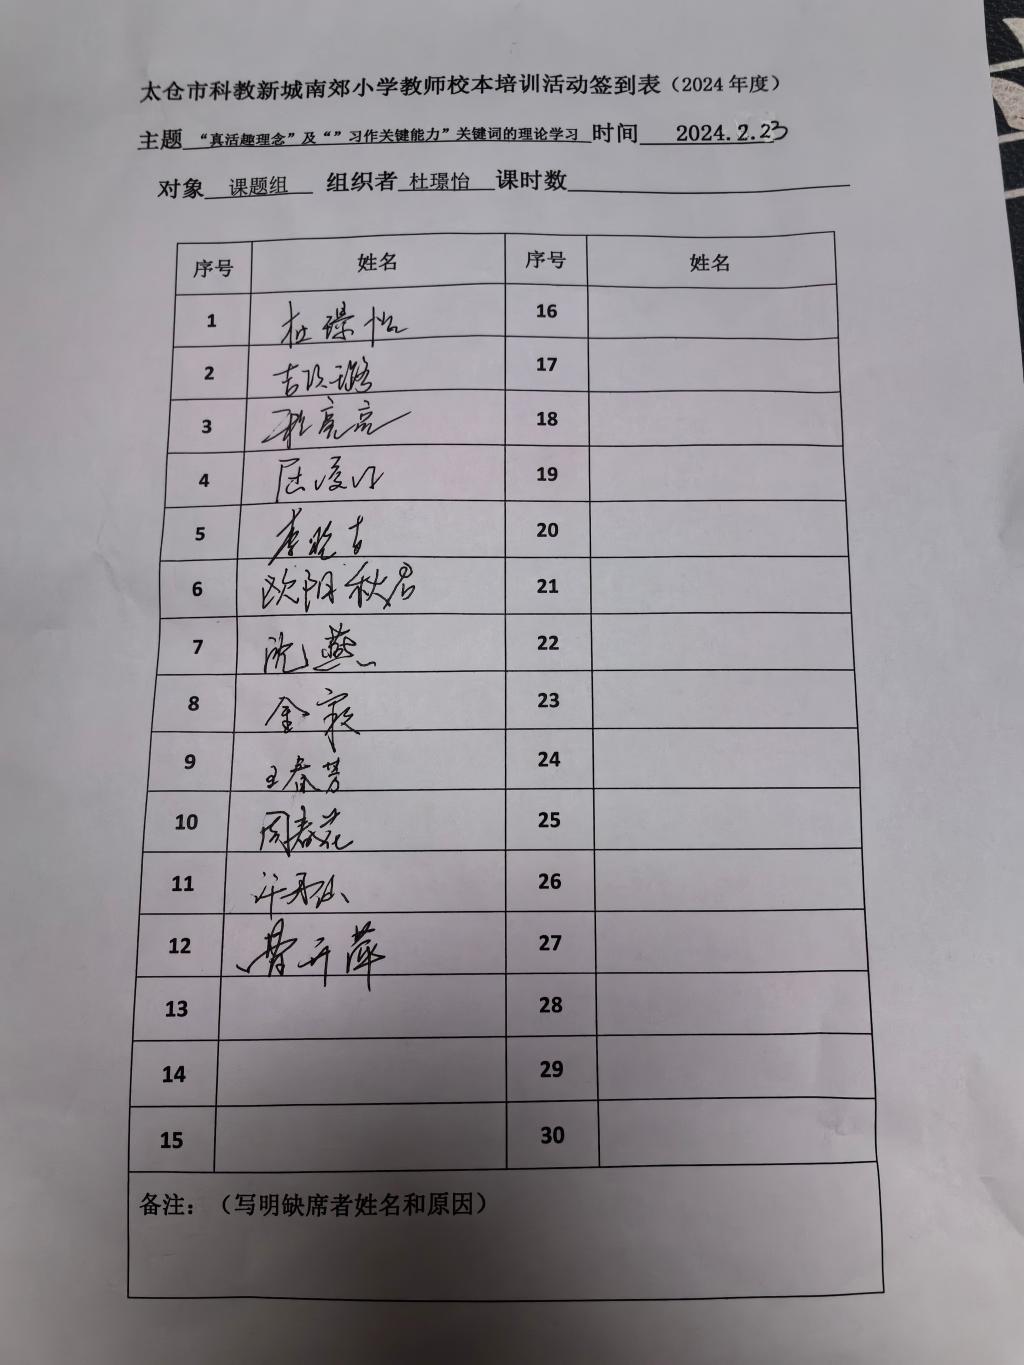 太仓市科教新城南郊小学教师校本培训活动签到表（2024 年度）
主题 “真活趣理念”及“”习作关键能力”关键词的理论学习 时间 2024.2.23
对象 课题组 组织者 杜璟怡 课时数
序号 姓名 序号 姓名
1 杜璟怡 16
2 17
3 程亮亮 18
4 19
5 20
6 欧阳秋君 21
7 沈燕 22
8 23
9 王春芳 24
10 周春花 25
11 26
12 27
13 28
14 29
15 30
备注：（写明缺席者姓名和原因）